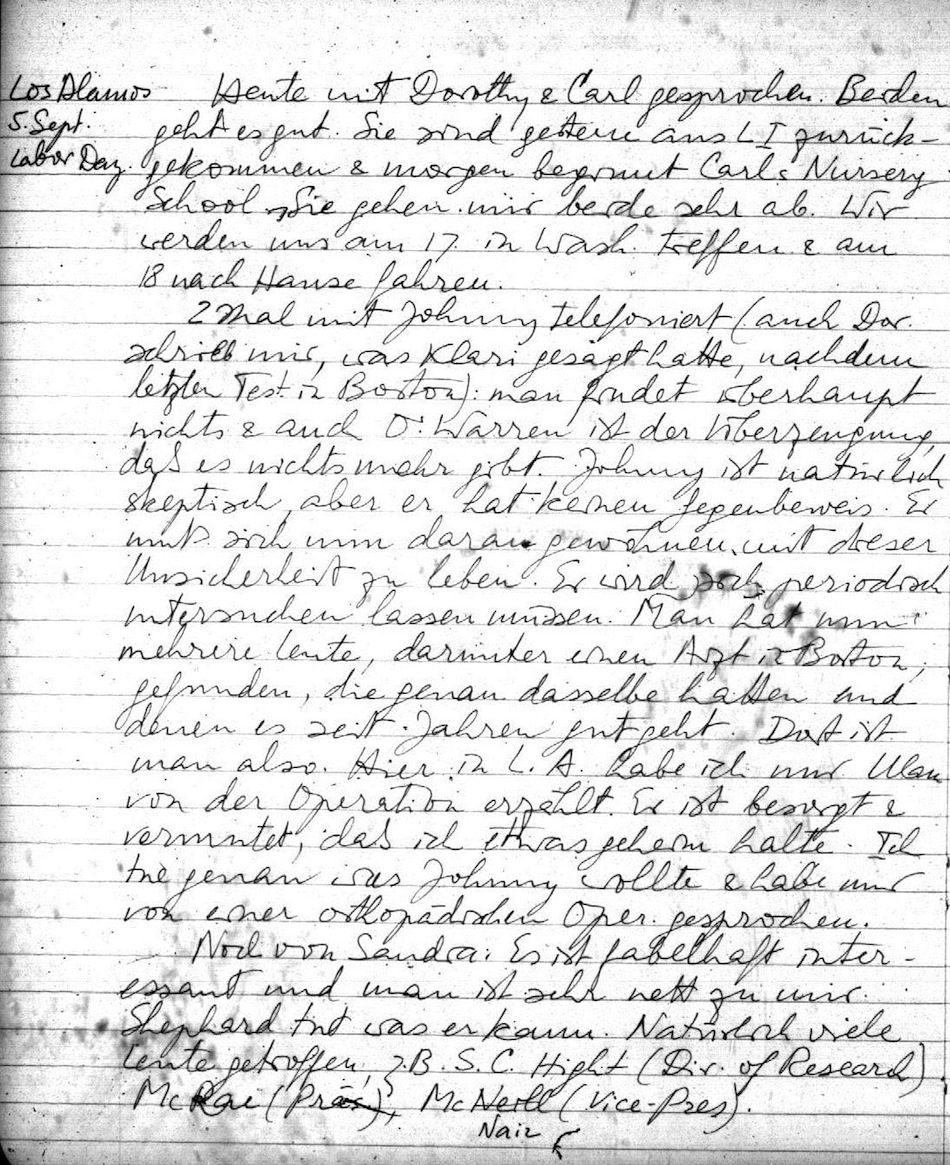 Los Alamos
5. Sept.
Labor Day.
Heute mit Dorothy & Carl gesprochen. Beiden
geht es gut. Sie sind gestern aus L I zurück-
gekommen & morgen beginnt Carls Nursery
School. Sie gehen mir beide sehr ab. Wir
werden uns am 17. in Wash. treffen & am
18 nach Hause fahren.
2 Mal mit Johnny telefoniert (auch Dor.
schrieb mir, was Klari gesagt hatte, nachdem
letzten Test in Boston): man findet überhaupt
nichts & auch D. Warren ist der Überzeugung,
daß es nichts mehr gibt. Johnny ist natürlich
skeptisch, aber er hat keinen Gegenbeweis. Er
muß sich nun daran gewöhnen, mit dieser
Unsicherheit zu leben. Er wird sich periodisch
untersuchen lassen müssen. Man hat nun
mehrere Leute, darunter einen Arzt in Boston,
gefunden, die genau dasselbe hatten und
denen es seit Jahren gut geht. Dort ist
man also. Hier in L. A. habe ich nur Ulam
von der Operation erzählt. Er ist besorgt &
vermutet, daß ich etwas geheim halte. Ich
tue genau was Johnny wollte & habe nur
von einer orthopädischen Oper. gesprochen.
Noch von Sandia: Es ist fabelhaft inter-
essant und man ist sehr nett zu mir.
Shephard tut was er kann. Natürlich viele
Leute getroffen, z.B. S. C. Hight (Dir. of Research)
McRae (Präs), McNeill (Vice-Pres).